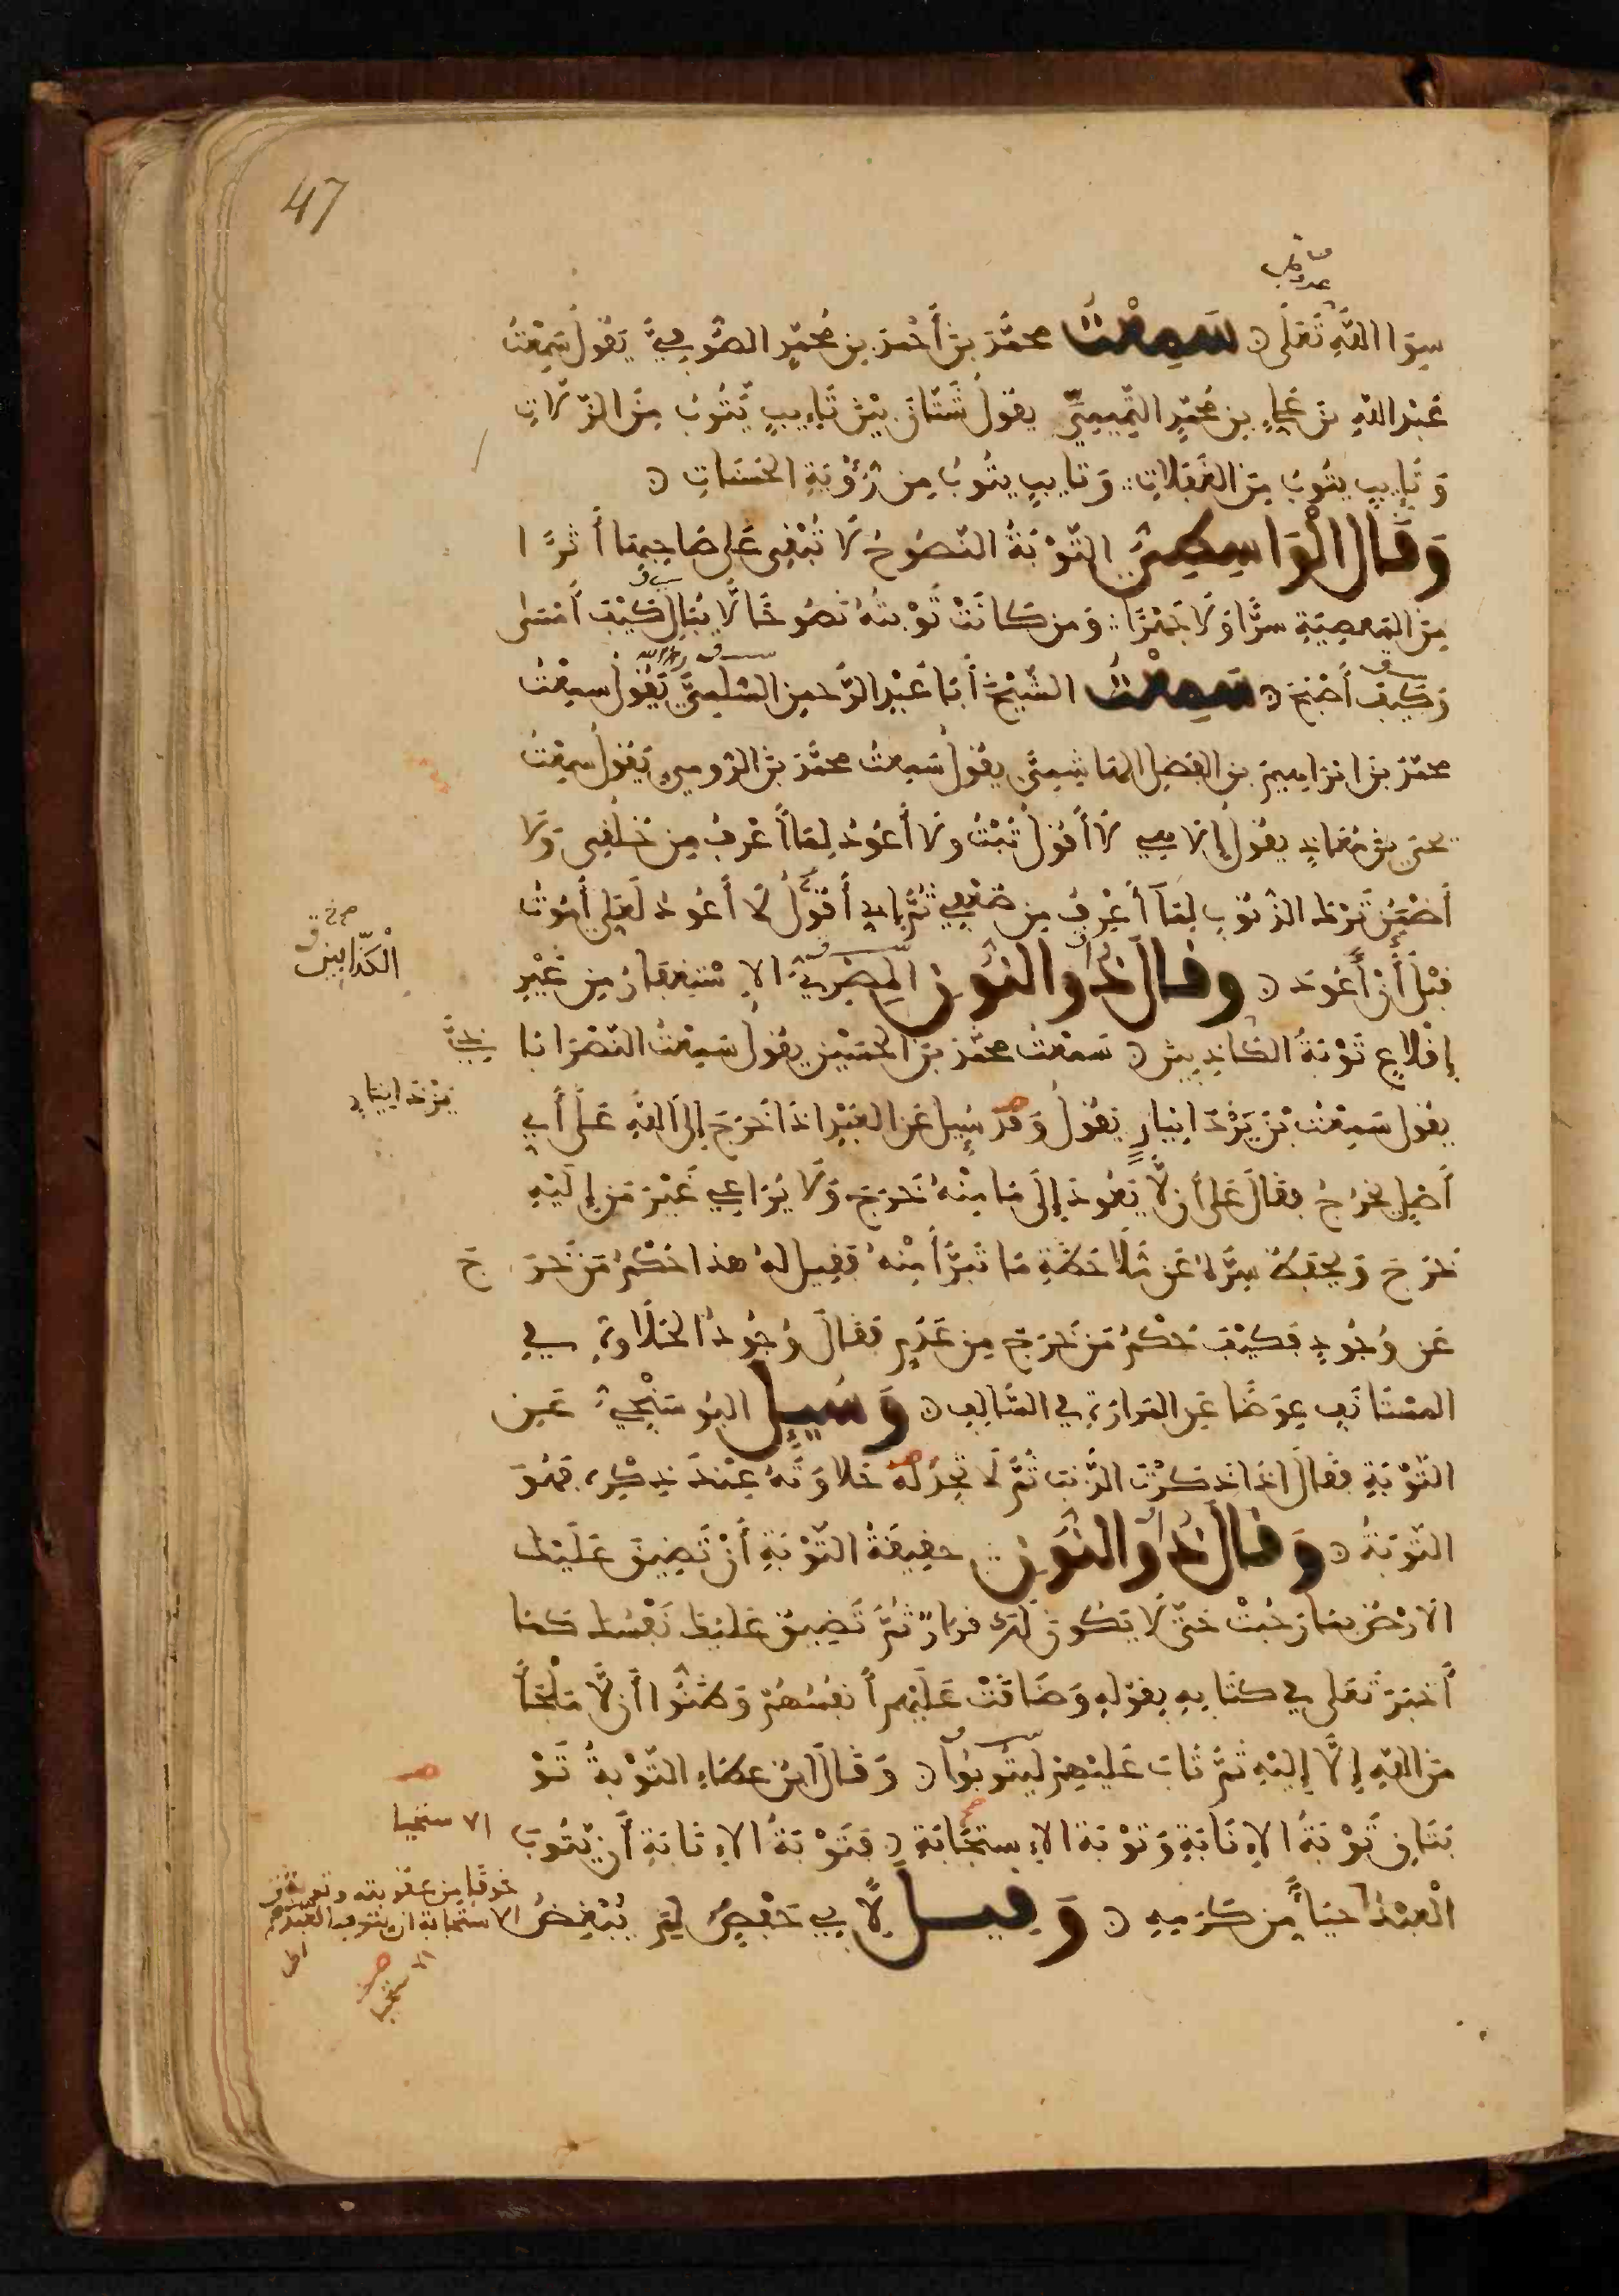 47
سِوَا اللَّهِ تَعَلَى سَمِعْتُ محمَّدَ بنَ أَحْمَدَ بنِ مُحَمَّدٍ الصُّوفِيَّ يَقُولُ سَمِعْتُ
عَبْدَ اللهِ بنَ عَلِيِّ بنِ مُحَمَّدٍ التَّمِيمِيَّ يقولُ شَتَّانَ بَيْنَ تَايِبٍ يَتُوبُ مِنَ الزَّلَّاتِ
وَتَايِبٍ يَتُوبُ مِنَ الغَفَلَاتِ وَتَايِبٍ يتُوبُ مِن رُؤْيَةِ الحَسَنَاتِ
وَقَالَ الْوَاسِطِيُّ التَّوْبَةُ النَّصُوحُ لَا تُبْقِي عَلَى صَاحِبِهَا أَثَرًا
مِنَ المَعصِيَةِ سِرًّا وَلَا جَهْرًا وَمَن كَانَتْ تَوْبَتُهُ نَصُوحًا لَّا يُبَالِ كَيْفَ أَمْسَى
وَكَيْفَ أَصْبَحَ سَمِعْتُ الشَّيْخَ أَبَا عَبْدِ الرَّحمنِ السُّلَمِيَّ يَقُولُ سمِعْتُ
محمَّدَ بنَ ابْرَاهِيمَ بنِ الفَضْلِ الهَاشِمِيَّ يقُولُ سَمِعتُ محمَّدَ بنَ الرُّومِيِّ يَقُولُ سمِعْتُ
يحيَى بنَ مُعَاذٍ يقُولُ إِلَاهِي لَا أَقُولُ تُبْتُ ولَا أَعُودُ لِمَا أَعْرِفُ مِن خُلُقِي وَلَا
أَضْمَنُ تَرْكَ الذُّنُوبِ لِمَا أَعْرِفُ مِن ضَعْفِي ثُمَّ إِنِّي أَقُولُ لَا أَعُودُ لَعَلِّي أَمُوتُ
قَبْلَ أَنْ أَعُودَ وقَالَ ذُو النُّونِ المِصْرِيُّ الإِسْتِغْفَارُ مِن غَيْرِ
الْكَذَّابِينَ
إِقْلَاعٍ تَوْبَةُ الكَاذِبِينَ سَمِعْتُ محمَّدَ بنَ الحُسَيْنِ يقُولُ سَمِعْتُ النَّصْرَابَا
ذِيَّ
يقُولُ سَمِعْتُ بْنَ يَزْدَانِيَارٍ يَقُولُ وَقَدْ سُيِلَ عَنِ العَبْدِ اذَا خَرَجَ إِلَى اللَّهِ عَلَى أَيِّ
يَزْدَانيَارِ
أَصْلٍ يَخْرُجُ فقَالَ عَلَى أَن لَّا يَعُودَ إِلَى مَا مِنْهُ خَرَجَ وَلَا يُرَاعِي غَيْرَ مَن إِلَيْهِ
خَرَجَ وَيَحْفَظُ سِرَّهُ عَن مُّلَاحَظَةِ مَا تَبَرَّأَ مِنْهُ فَقِيلَ لَهُ هذا حُكْمُ مَن خَرَجَ
عَن وُجُودٍ فَكَيْفَ حُكْمُ مَن خَرَجَ مِن عَدَمٍ فَقَالَ وُجُودُ الحَلَاوَةِ فِي
المُسْتَأْنَفِ عِوَضًا عَنِ المَرَارَةِ فِي السَّالِفِ وَسُيِلَ البُوشَنْجِيُّ عَنِ
التَّوْبَةِ فقَالَ اذا ذَكَرْتَ الذَّنبَ ثُمَّ لَا تَجِدُ لَهُ حَلَاوَةً عِنْدَ ذِكْرِهِ فَهُوَ
التَّوْبَةُ وَقَالَ ذُو النُّونِ حقِيقَةُ التَّوْبَةِ أَنْ تَضِيقَ عَلَيْكَ
الأَرْضُ بمَا رَحُبَتْ حَتَّى لَا يَكُونَ لَكَ قرَارٌ ثُمَّ تَضِيقُ عَلَيْكَ نَفْسُكَ كمَا
أَخْبَرَ تَعَلى فِي كتَابِهِ بِقَوْلِهِ وَضَاقَتْ عَلَيْهِمْ أَنفُسُهُمْ وَظَنُّوا أَن لَّا مَلْجَأَ
مِنَ اللَّهِ إِلَّا إِلَيْهِ ثُمَّ تَابَ عَلَيْهِمْ لِيَتُوبُوا وَقَالَ ابنُ عطَاءٍ التَّوْبَةُ تَوْ
بَتَانِ تَوْبَةُ الإِنَابَةِ وَتَوْبَةُ الإِسْتِجَابَةِ فَتَوْبَةُ الإِنَابَةِ أَن يَّتُوبَ
الْعَبْدُ حَيَاءً مِن كَرَمِهِ وَقِيلَ لِأَبِي حَفْصٍ لِمَ يُبْغِضُ
خوفًا من عقوبته وتوبة
الاستجابة ان يتوب العبد